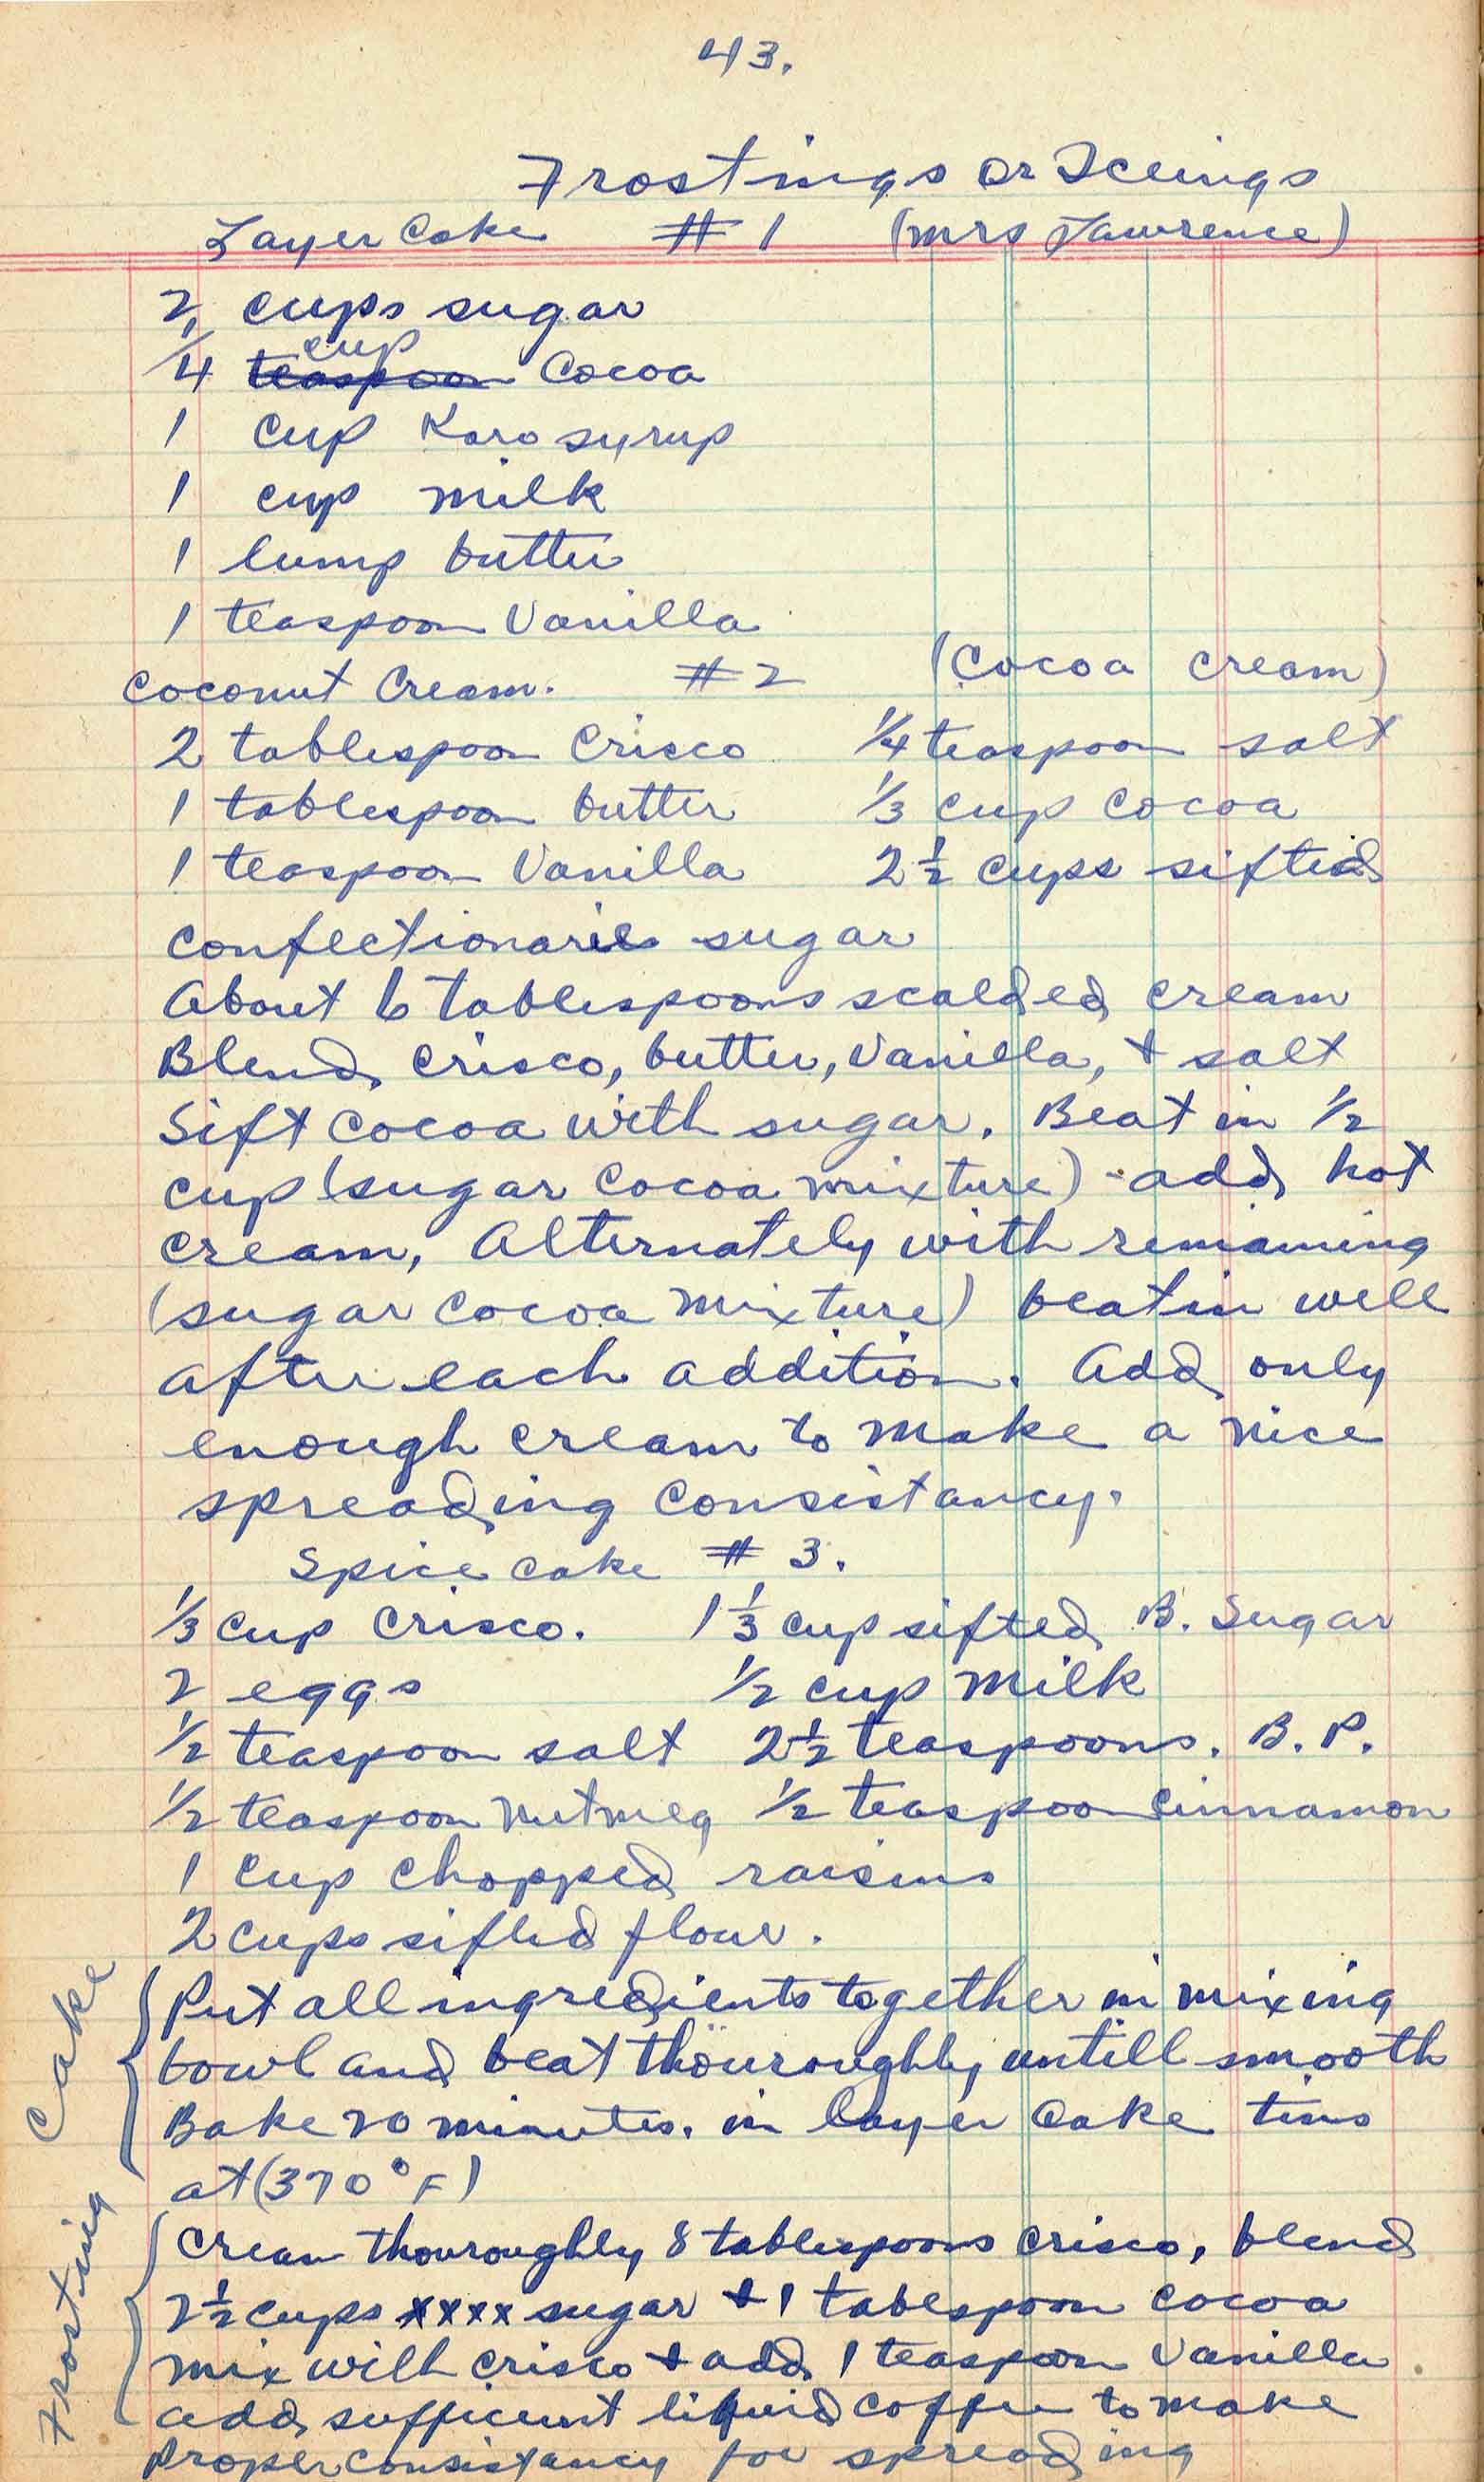 43.
Frostings or Iceings
Layer Cake #1 (Mrs Lawrence)
2 cups sugar
cup
1/4 teaspoon Cocoa
1 cup Karo syrup
1 cup milk
1 lump butter
1 teaspoon Vanilla
Coconut Cream. #2 (Cocoa cream)
2 tablespoon Crisco 1/4 teaspoon salt
1 tablespoon butter 1/3 cup Cocoa
1 teaspoon Vanilla 2 1/2 cups sifted
Confectionaries sugar
About 6 tablespoons scalded cream
Blend, Crisco, butter, Vanilla, + salt
Sift Cocoa with sugar. Beat in 1/2
cup (sugar Cocoa mixture) - add hot
cream, Alternately with remaining
(sugar Cocoa Mixture) beat in well
after each addition. Add only
enough cream to make a nice
spreading Consistancy.
Spice Cake #3.
1/3 cup Crisco. 1 1/3 cup sifted B. Sugar
2 eggs 1/2 cup Milk
1/2 teaspoon salt 2 1/2 teaspoons. B. P.
1/2 teaspoon Nutmeg 1/2 teaspoon Cinnamon
1 cup chopped raisins
2 cups sifted flour.
Cake
Put all ingredients together in mixing
bowl and beat thouroughly untill smooth
Bake 20 minutes. in layer Cake tins
at (370°F)
Frosting
Cream thouroughly 8 tablespoons Crisco, blend
2 1/2 cups xxxx sugar + 1 tabespoon Cocoa
mix with Crisco + add 1 teaspoon Vanilla.
add sufficient liquid coffee to make
proper consistancy for spreading